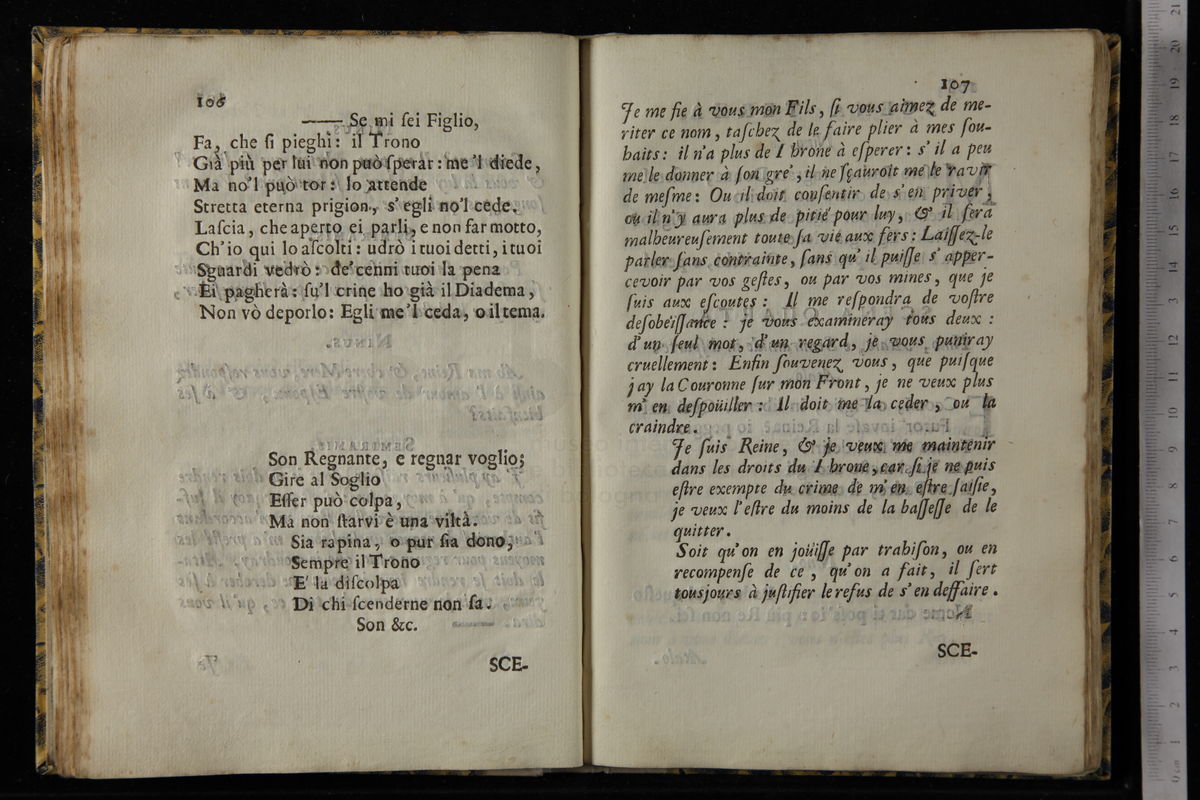 106
—— Se mi ſei Figlio,
Fa, che ſi pieghi: il Trono
Già più per lui non può ſperar: me'l diede,
Ma no'l può tor: lo attende
Stretta eterna prigion, s'egli no'l cede.
Laſcia, che aperto ei parli, e non far motto,
Ch'io qui lo aſcolti: udrò i tuoi detti, i tuoi
Sguardi vedrò: de' cenni tuoi la pena
Ei pagherà: ſu'l crine ho già il Diadema,
Non vò deporlo: Egli me'l ceda, o il tema.
Son Regnante, e regnar voglio;
Gire al Soglio
Eſſer può colpa,
Ma non ſtarvi è una viltà.
Sia rapina, o pur ſia dono,
Sempre il Trono
E' la diſcolpa
Di chi ſcenderne non ſa.
Son &c.
SCE-
107
Je me fie à vous mon Fils, ſi vous aimez de me-
riter ce nom, taſchez de le faire plier à mes ſou-
haits: il n'a plus de Throne à eſperer: s'il a peu
me le donner à ſon gre', il ne ſçauroit me le ravir
de meſme: Ou il doit conſentir de s'en priver,
ou il n'y aura plus de pitié pour luy, & il ſera
malheureuſement toute ſa vie aux fers: Laiſſez-le
parler ſans contrainte, ſans qu'il puiſſe s'apper-
cevoir par vos geſtes, ou par vos mines, que je
ſuis aux eſcoutes: Il me reſpondra de voſtre
deſobéiſſance: je vous examineray tous deux:
d'un ſeul mot, d'un regard, je vous puniray
cruellement: Enfin ſouvenez vous, que puiſque
j ay la Couronne ſur mon Front, je ne veux plus
m'en deſpoüiller: Il doit me la ceder, ou la
craindre.
Je ſuis Reine, & je veux me maintenir
dans les droits du Throne, car ſi je ne puis
eſtre exempte du crime de m'en eſtre ſaiſie,
je veux l'eſtre du moins de la baſſeſſe de le
quitter.
Soit qu'on en joüiſſe par trahiſon, ou en
recompenſe de ce, qu'on a fait, il ſert
tousjours à juſtifier le refus de s'en deffaire.
SCE-